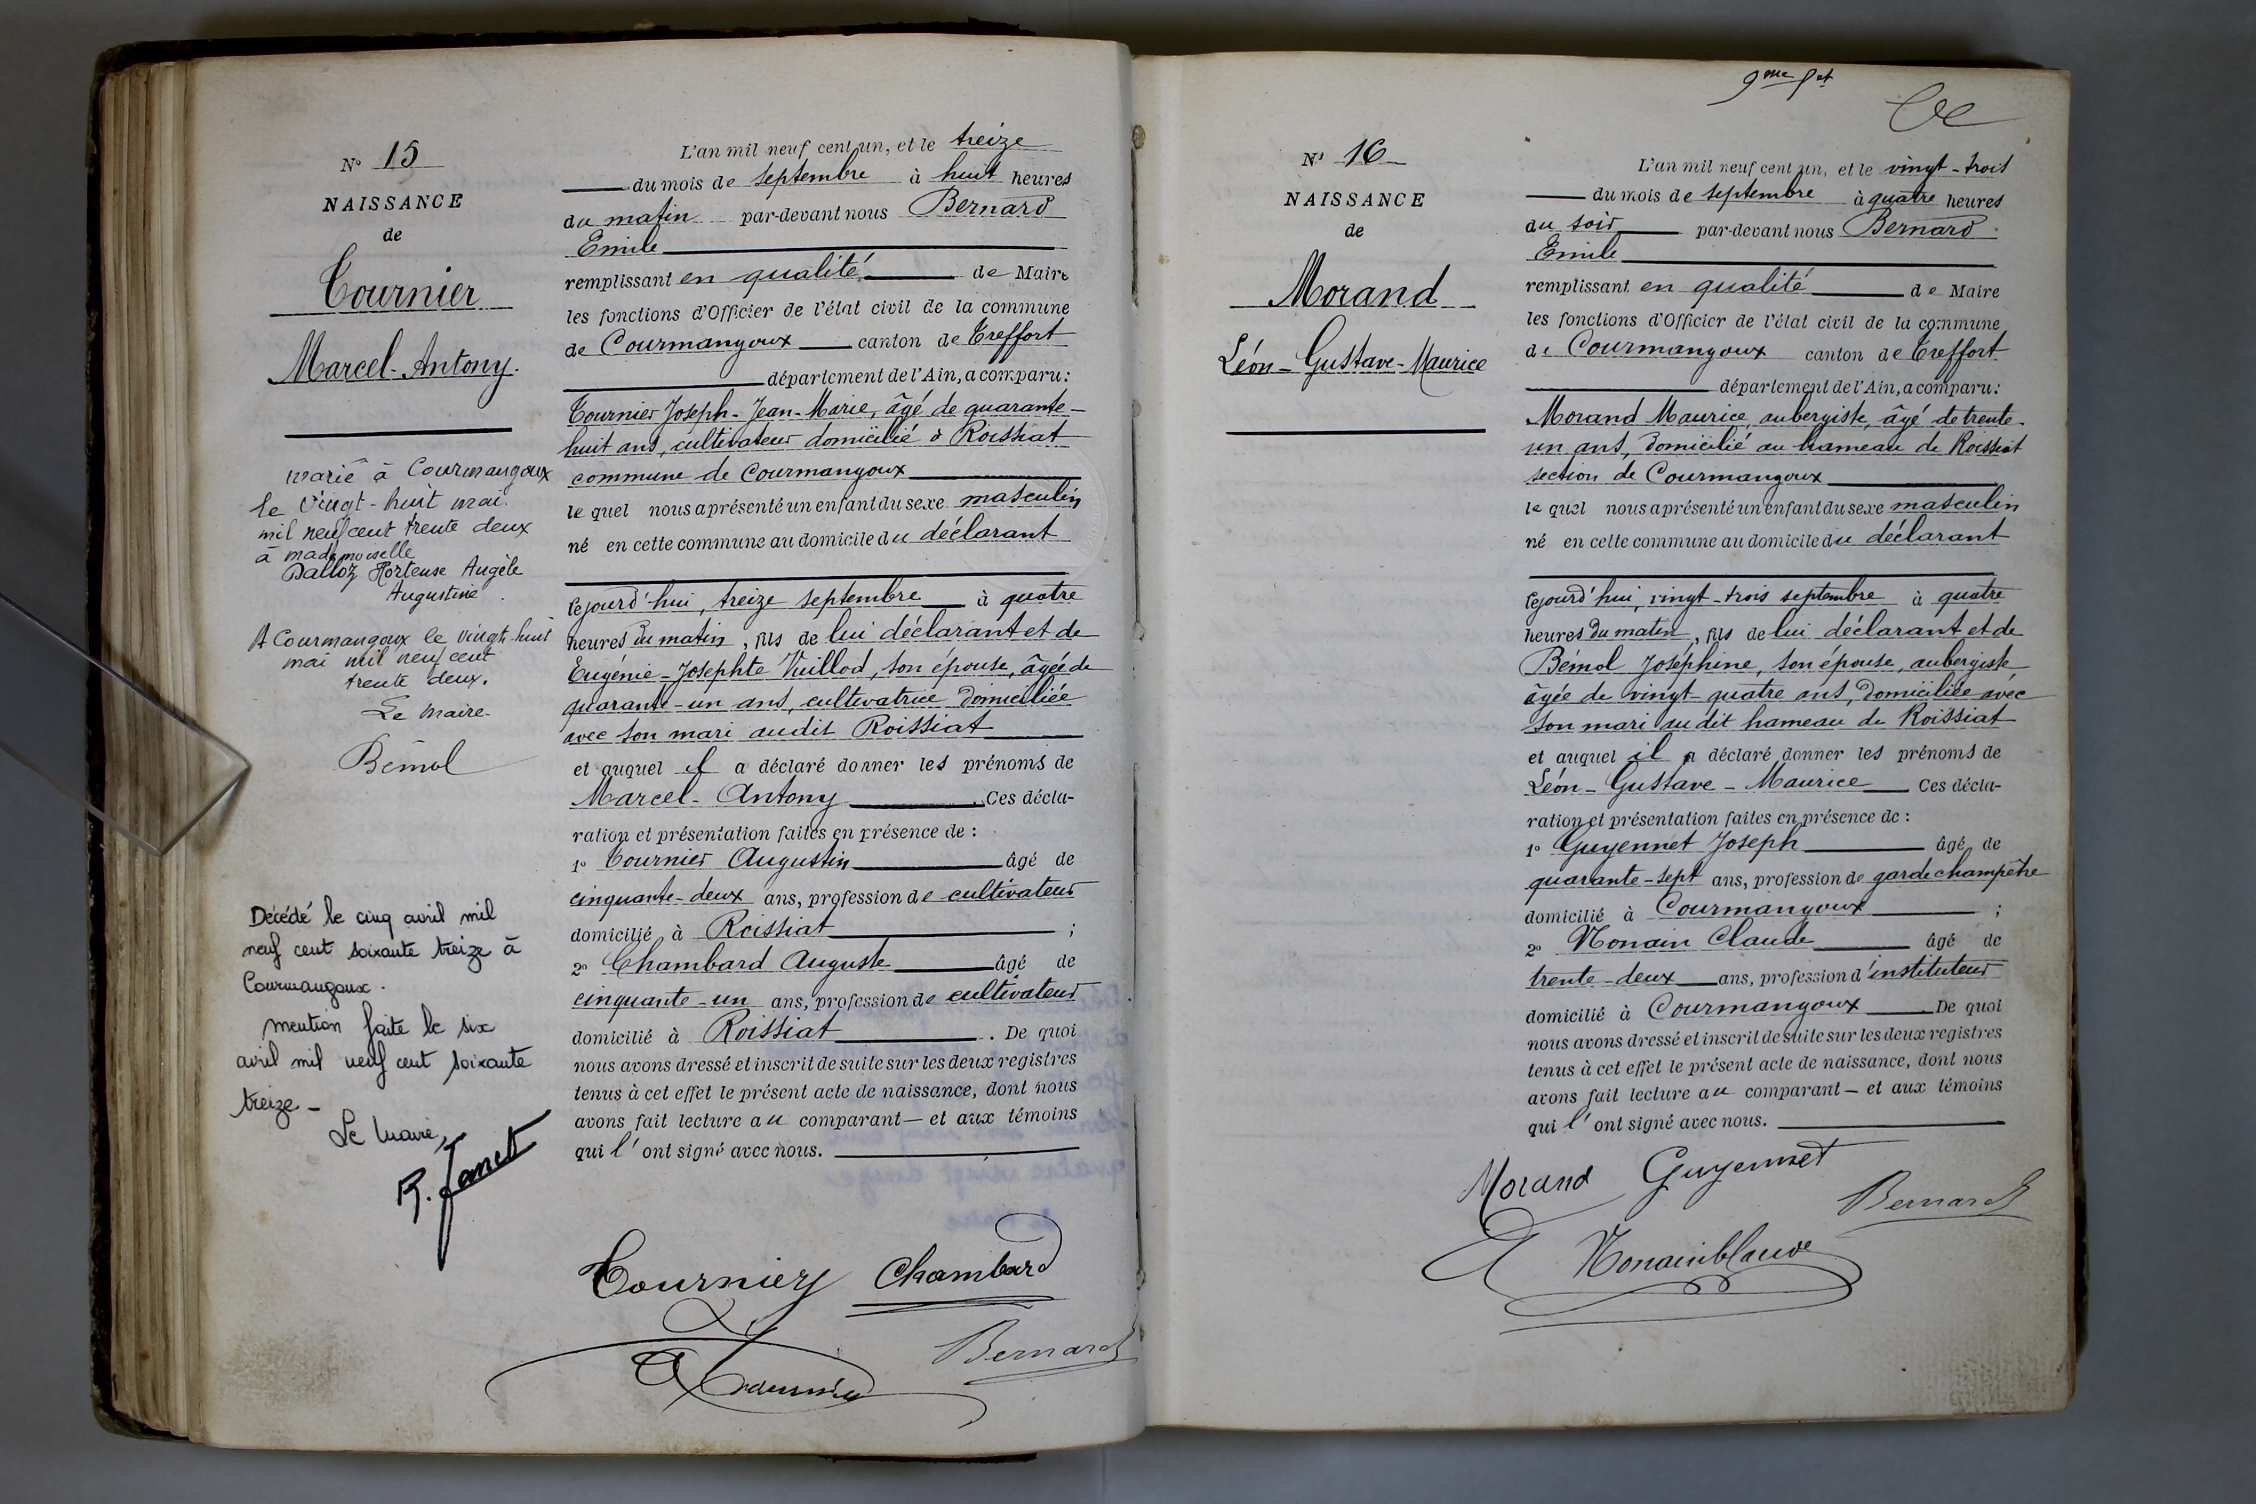 N° 15
NAISSANCE
de
Tournier
Marcel-Antony.
marié à Courmangoux
le vingt-huit mai
mil neuf cent trente deux
à mademoiselle
Dalloz Hortense Angèle
Augustine.
A Courmangoux le vingt-huit
mai mil neuf cent
trente deux.
Le Maire
Bémol
Décédé le cinq avril mil
neuf cent soixante treize à
Courmangoux.
mention faite le six
avril mil neuf cent soixante
treize -
Le Maire,
R. Janet
L'an mil neuf cent un, et le treize
du mois de septembre à huit heures
du matin par-devant nous Bernard
Emile
remplissant en qualité de Maire
les fonctions d'Officier de l'état civil de la commune
de Courmangoux canton de Treffort
département de l'Ain, a comparu:
Tournier Joseph-Jean-Marie, âgé de quarante-
huit ans, cultivateur domicilié à Roissiat
commune de Courmangoux
lequel nous a présenté un enfant du sexe masculin
né en cette commune au domicile du déclarant
cejourd'hui, treize septembre à quatre
heures du matin, fils de lui déclarant et de
Eugénie-Josephte Vuillod, son épouse, âgée de
quarante-un ans, cultivatrice domiciliée
avec son mari audit Roissiat
et auquel il a déclaré donner les prénoms de
Marcel-Antony. Ces décla-
ration et présentation faites en présence de :
1° Tournier Augustin âgé de
cinquante-deux ans, profession de cultivateur
domicilié à Roissiat ;
2° Chambard Auguste âgé de
cinquante-un ans, profession de cultivateur
domicilié à Roissiat. De quoi
nous avons dressé et inscrit de suite sur les deux registres
tenus à cet effet le présent acte de naissance, dont nous
avons fait lecture au comparant — et aux témoins
qui l'ont signé avec nous.
Tournier Chambard
Bernard
A Tournier
9me
N° 16
NAISSANCE
de
Morand
Léon-Gustave-Maurice
L'an mil neuf cent un, et le vingt-trois
du mois de septembre à quatre heures
du soir par-devant nous Bernard
Emile
remplissant en qualité de Maire
les fonctions d'Officier de l'état civil de la commune
de Courmangoux canton de Treffort
département de l'Ain, a comparu:
Morand Maurice, aubergiste, âgé de trente-
un ans, domicilié au hameau de Roissiat
section de Courmangoux
lequel nous a présenté un enfant du sexe masculin
né en cette commune au domicile du déclarant
cejourd'hui, vingt-trois septembre à quatre
heures du matin, fils de lui déclarant et de
Bémol Joséphine, son épouse, aubergiste
âgée de vingt-quatre ans, domiciliée avec
son mari au dit hameau de Roissiat
et auquel il a déclaré donner les prénoms de
Léon-Gustave-Maurice Ces décla-
ration et présentation faites en présence de :
1° Guyennet Joseph âgé de
quarante-sept ans, profession de garde champêtre
domicilié à Courmangoux ;
2° Monain Claude âgé de
trente-deux ans, profession d'instituteur
domicilié à Courmangoux De quoi
nous avons dressé et inscrit de suite sur les deux registres
tenus à cet effet le présent acte de naissance, dont nous
avons fait lecture au comparant — et aux témoins
qui l'ont signé avec nous.
Morand Guyennet
Bernard
Monain Claude